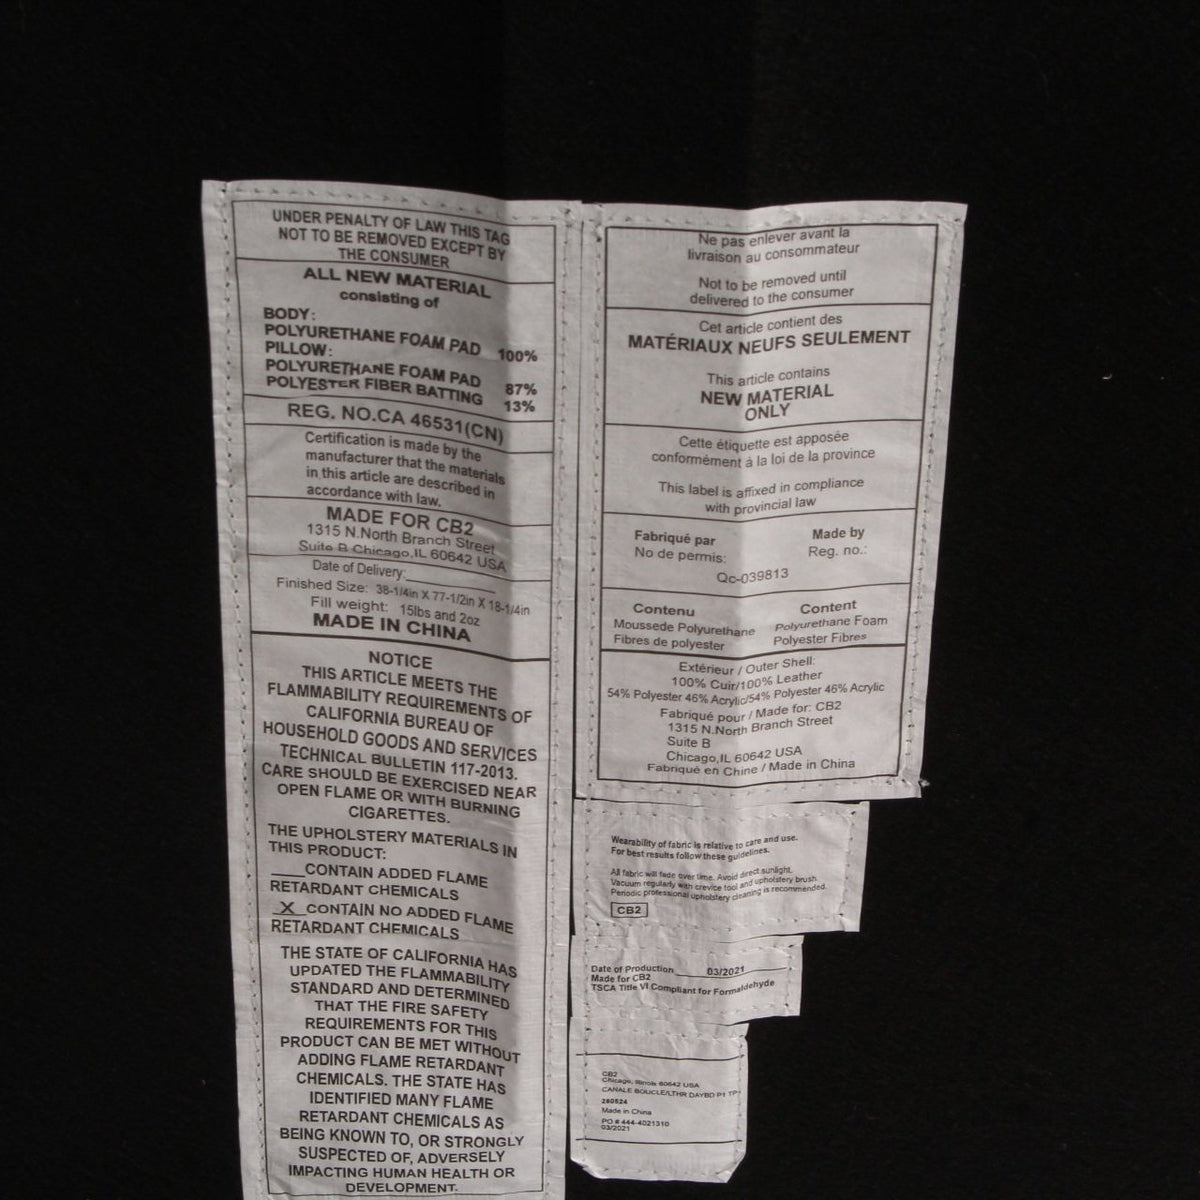 UNDER PENALTY OF LAW THIS TAG
NOT TO BE REMOVED EXCEPT BY
THE CONSUMER
ALL NEW MATERIAL
consisting of
BODY:
POLYURETHANE FOAM PAD 100%
PILLOW:
POLYURETHANE FOAM PAD 87%
POLYESTER FIBER BATTING 13%
REG. NO.CA 46531(CN)
Certification is made by the
manufacturer that the materials
in this article are described in
accordance with law.
MADE FOR CB2
1315 N.North Branch Street
Suite B Chicago,IL 60642 USA
Date of Delivery:
Finished Size: 38-1/4in X 77-1/2in X 18-1/4in
Fill weight: 15lbs and 2oz
MADE IN CHINA
NOTICE
THIS ARTICLE MEETS THE
FLAMMABILITY REQUIREMENTS OF
CALIFORNIA BUREAU OF
HOUSEHOLD GOODS AND SERVICES
TECHNICAL BULLETIN 117-2013.
CARE SHOULD BE EXERCISED NEAR
OPEN FLAME OR WITH BURNING
CIGARETTES.
THE UPHOLSTERY MATERIALS IN
THIS PRODUCT:
____CONTAIN ADDED FLAME
RETARDANT CHEMICALS
X CONTAIN NO ADDED FLAME
RETARDANT CHEMICALS
THE STATE OF CALIFORNIA HAS
UPDATED THE FLAMMABILITY
STANDARD AND DETERMINED
THAT THE FIRE SAFETY
REQUIREMENTS FOR THIS
PRODUCT CAN BE MET WITHOUT
ADDING FLAME RETARDANT
CHEMICALS. THE STATE HAS
IDENTIFIED MANY FLAME
RETARDANT CHEMICALS AS
BEING KNOWN TO, OR STRONGLY
SUSPECTED OF, ADVERSELY
IMPACTING HUMAN HEALTH OR
DEVELOPMENT.
Ne pas enlever avant la
livraison au consommateur
Not to be removed until
delivered to the consumer
Cet article contient des
MATÉRIAUX NEUFS SEULEMENT
This article contains
NEW MATERIAL
ONLY
Cette étiquette est apposée
conformément à la loi de la province
This label is affixed in compliance
with provincial law
Fabriqué par Made by
No de permis: Reg. no.:
Qc-039813
Contenu Content
Moussede Polyurethane Polyurethane Foam
Fibres de polyester Polyester Fibres
Extérieur / Outer Shell:
100% Cuir/100% Leather
54% Polyester 46% Acrylic/54% Polyester 46% Acrylic
Fabriqué pour / Made for: CB2
1315 N.North Branch Street
Suite B
Chicago,IL 60642 USA
Fabriqué en Chine / Made in China
Wearability of fabric is relative to care and use.
For best results follow these guidelines.
All fabric will fade over time. Avoid direct sunlight.
Vacuum regularly with crevice tool and upholstery brush.
Periodic professional upholstery cleaning is recommended.
CB2
Date of Production 03/2021
Made for CB2
TSCA Title VI Compliant for Formaldehyde
CB2
Chicago, Illinois 60642 USA
CANALE BOUCLE/LTHR DAYBD P1 TP
280524
Made in China
PO # 444-4021310
03/2021